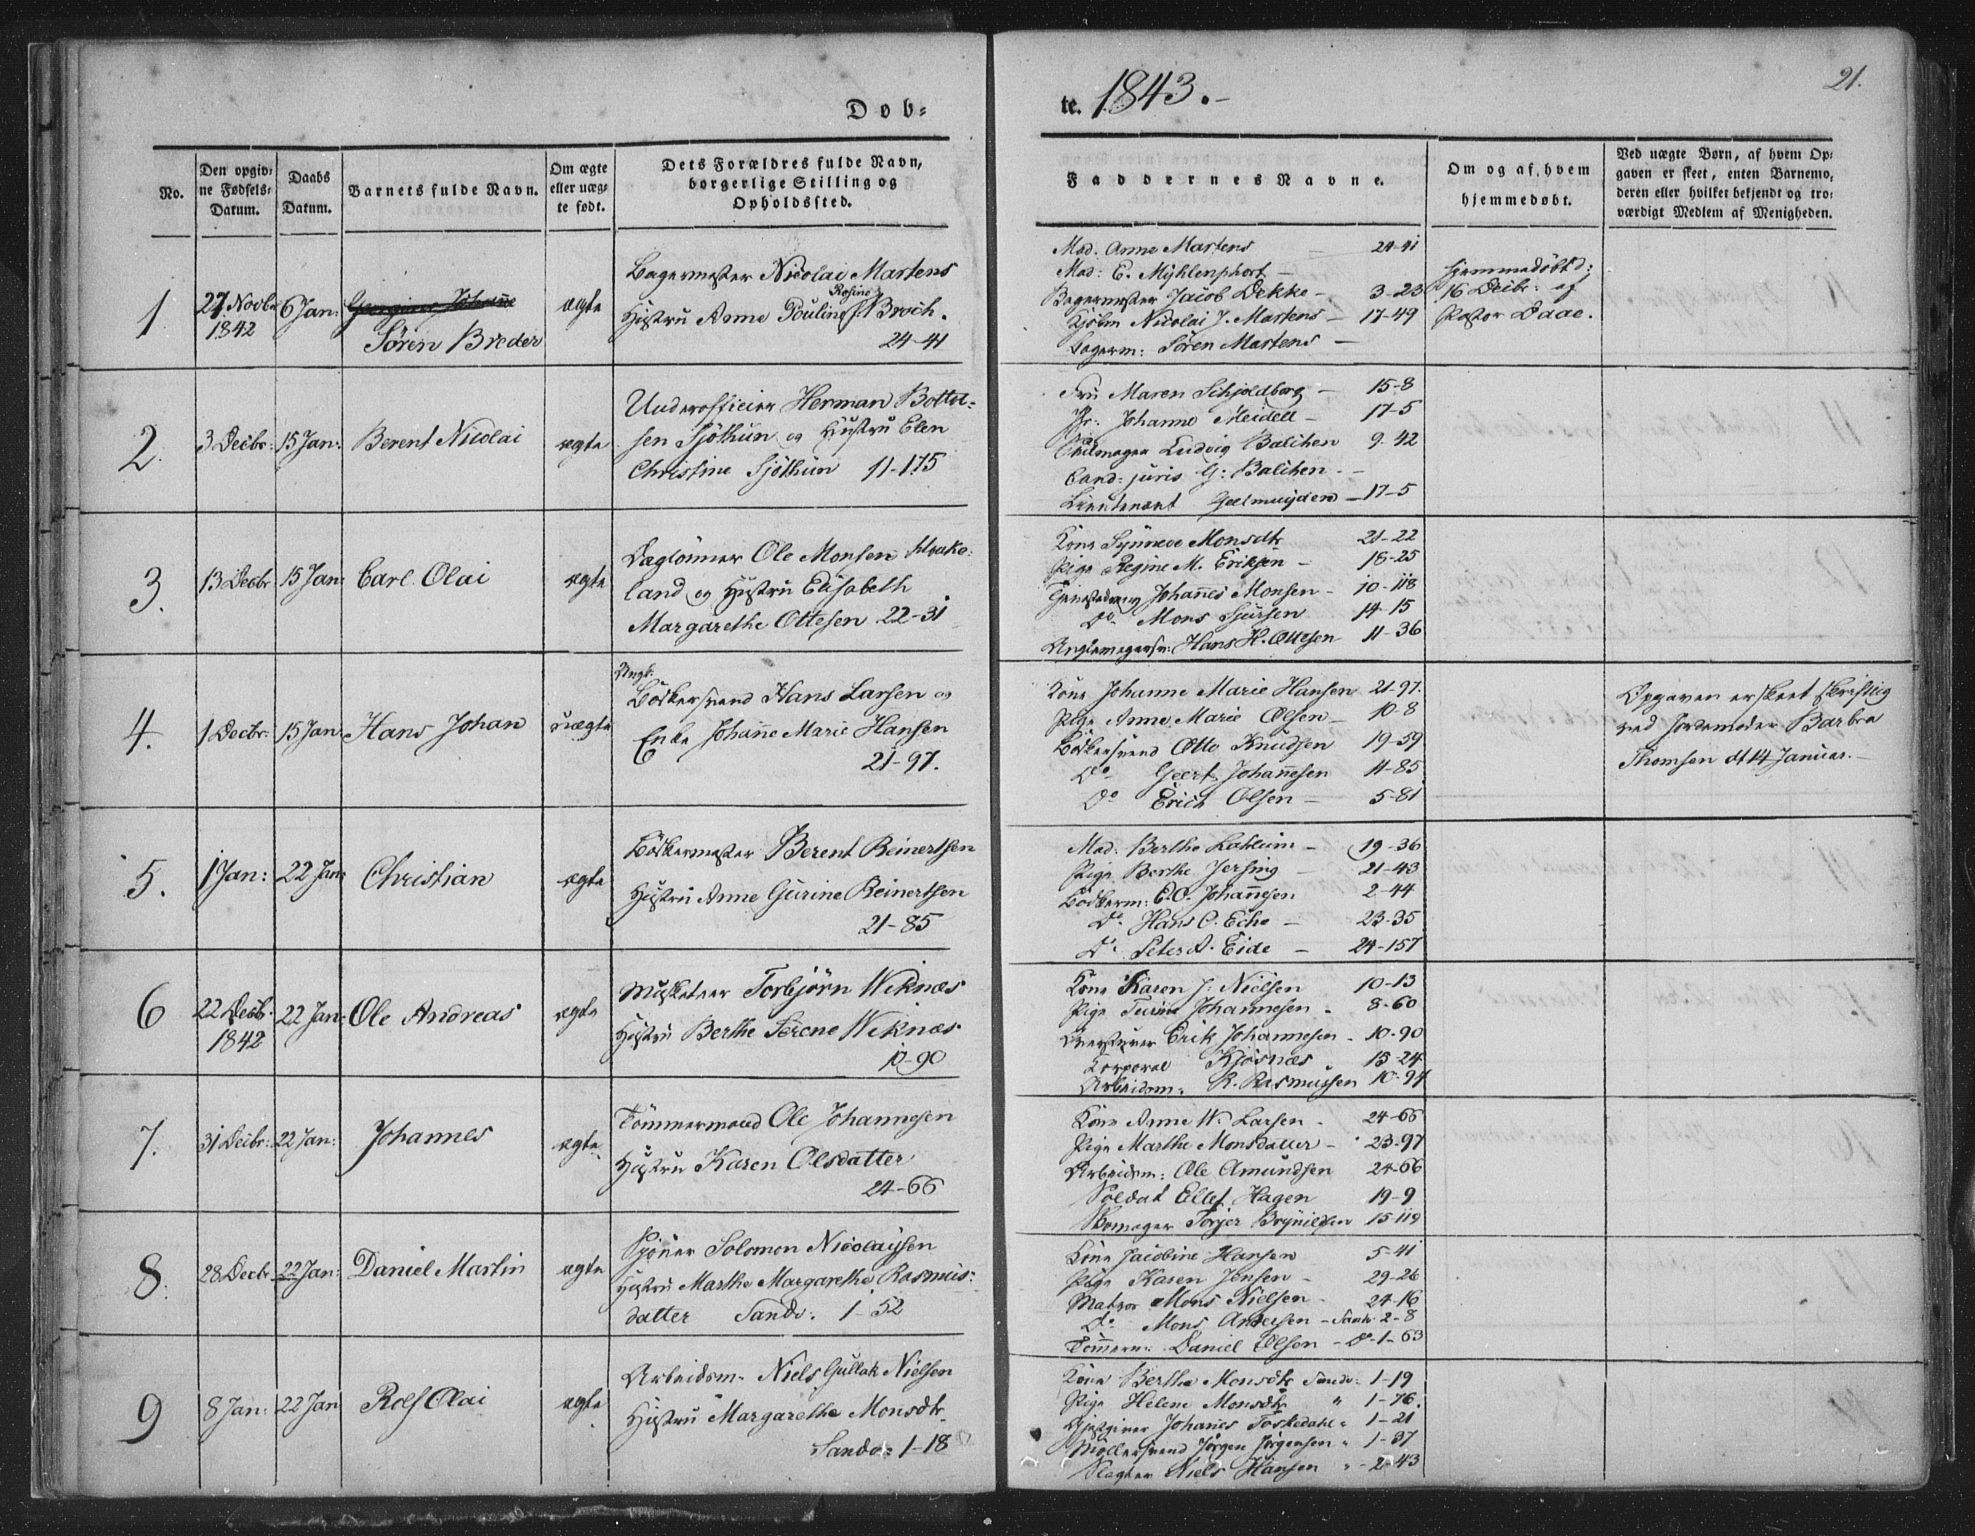 Døb=
te. 1843.-
21.
No.
Den opgiv=
ne Fødsels=
Datum.
Daabs
Datum.
Barnets fulde Navn.
Om ægte
eller uæg=
te født.
Dets Forældres fulde Navn,
borgerlige Stilling og
Opholdssted.
Faddernes Navne.
Om og af, hvem
hjemmedøbt.
Ved uægte Børn, af hvem Op=
gaven er skeet, enten Barnemo=
deren eller hvilket bekjendt og tro=
værdigt Medlem af Menigheden.
1
27 Novbr
1842
6 Jan:
Sören Breder
ægte
Bagermester Nicolai Martens
Rosine
Hustru Anne Pouline Broch.
24-41
Mad. Anne Martens 24-41
Mad: E. Myhlenphort -
Bagermester Jacob Dekke - 3-23
Kjøbm Nicolai J. Martens - 17-49
Bagerm: Sören Martens -
hjemmedøbt d:
16 Decbr: af
Pastor Daae.
2.
3 Decbr:
15 Jan:
Berent Nicolai
ægte
Underofficier Herman Bottol=
sen Sjöthun og Hustru Elen
Christine Sjöthun 11-175
Fru Maren Schjoldborg - 15-8
Jfr: Johanne Meidell - 17-5
Ludvig Balchen 9-42
Cand: juris G: Balchen -
Lieutenant Geelmuyden - 17-5
3.
13 Decbr
15 Jan:
Carl Olai
ægte
Daglönner Ole Monsen
land og Hustru Elisabeth
Margarethe Ottesen 22-31
Kone Synneve Monsdtr 21-22
Pige Regine M. Eriksen - 18-25
Johannes Monsen - 10-118
Do Mons Sjursen 14-15
Hans H. Ottesen 11-36
4.
1 Decbr:
15 Jan:
Hans Johan
uægte
Ungk:
Bödkersvend Hans Larsen og
Enke Johanne Marie Hansen
21-97.
Kone Johanne Marie Hansen 21-97.
Pige Anne Marie Olsen - 10-8
Bödkersvend Otto Knudsen 19-59
Do Geert Johannesen 11-85
Do Erich Olsen - 5-81
Opgaven er skeet skriftlig
ved Jordemoder Barbra
Thomsen dt 14 Januar. -
5.
1 Jan:
22 Jan:
Christian
ægte
Bödkermester Berent Reinertsen
Hustru Anne Gurine Reinertsen
21-85
Mad: Berthe Lahlum - 19-36
Pige Berthe Jersing - 21-43
Bödkerm: E. O. Johannesen 2-44
Do Hans C. Echo - 23-35
Do Peter A. Eide - 24-157
6
22 Decb.
1842
22 Jan:
Ole Andreas
ægte
Musketeer Torbjörn Wiknæs
Hustru Berthe Serene Wiknæs.
10-90
Kone Karen J. Nielsen 10-13
Pige Turine Johannesen - 8-60
Erik Johannesen - 10-90
Korporal Kjösnæs 15-24
Arbeidsm: R. Rasmussen 10-94
7.
31 Decbr:
22 Jan:
Johannes
ægte
Tömmermand Ole Johannesen
Hustru Karen Olsdatter
24-66
Kone Anne W. Larsen - 24-66
Pige Marthe Monsdatter - 23-97
Arbeidsm: Ole Amundsen 24-66
Soldat Ellef Hagen 19-9
Skomager Torjer Brynildsen 15-119
8.
28 Decbr
22 Jan:
Daniel Martin
ægte
Solomon Nicolaysen
Hustru Marthe Margarethe Rasmus=
datter Sandv: 1-52
Kone Jacobine Hansen 5-41
Pige Karen Jensen - 29-26
Matros Mons Nielsen - 24-16
Do Mons Andersen - Sandv 2-8
Tömmerm: Daniel Olsen - Do 1-63
9
8 Jan:
22 Jan
Rolf Olai
ægte
Arbeidsm: Niels Gullak Nielsen
Hustru Margarethe Monsdtr.
Sandv: 1-18
Kone Berthe Monsdtr Sandv: 1-19
Pige Helene Monsdtr " 1-76.
Gjestgiver Johannes Toskedahl " 1-21
Möllersvend Jörgen Jörgensen " 1-37
Slagter Niels Hansen " 2-43